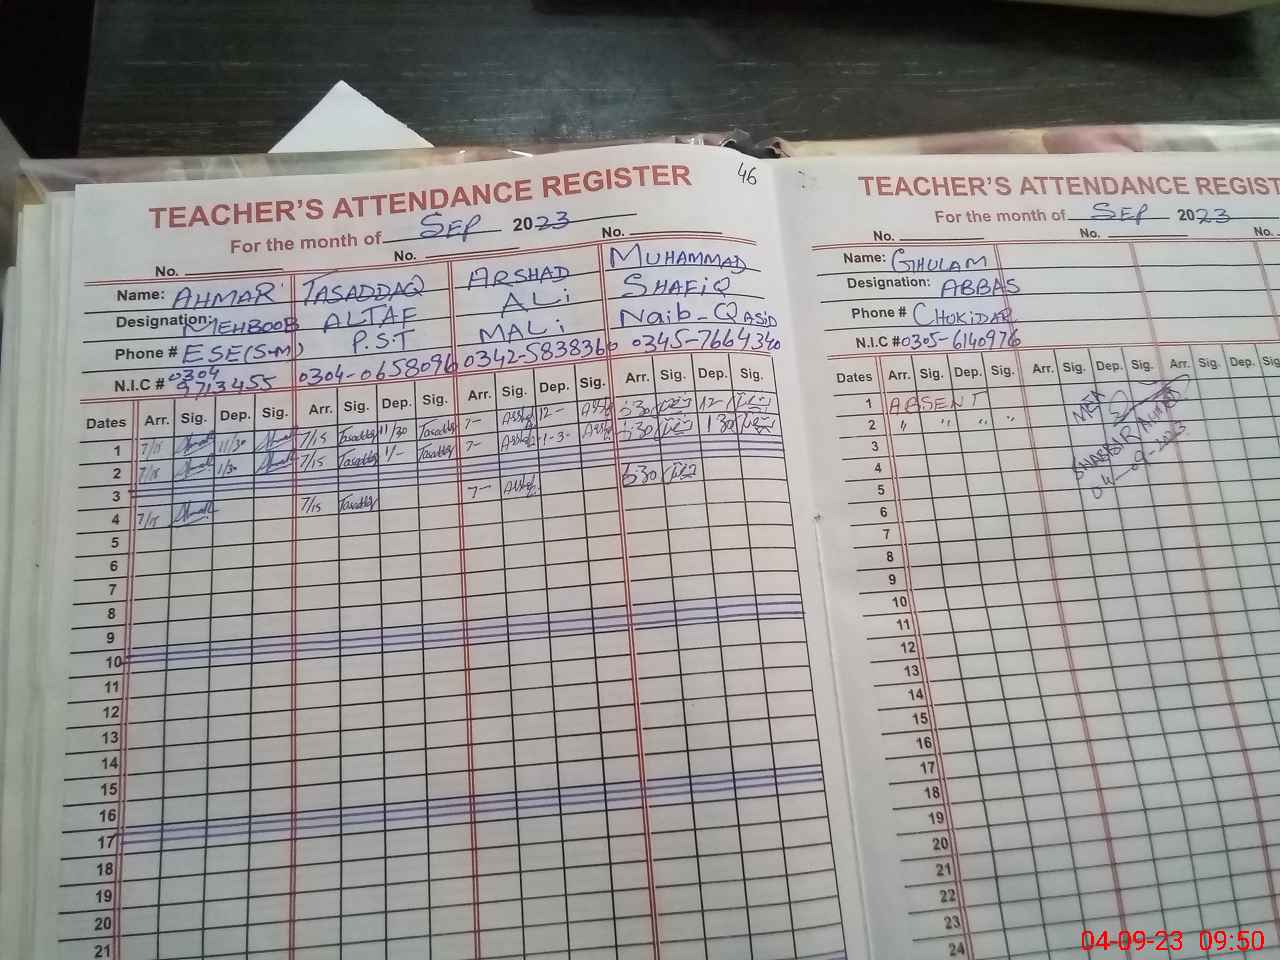 46
TEACHER'S ATTENDANCE REGISTER
For the month of SEP 2023
No. No. No.
Name: AHMAR TASADDAQ ARSHAD MUHAMMAD
Designation: MEHBOOB ALTAF ALi SHAFiQ
Phone # ESE(S-M) P.S.T MALi Naib-QASiD
N.I.C # 0304 9713455 0304-0658096 0342-5838360 0345-7664340
Dates Arr. Sig. Dep. Sig. Arr. Sig. Dep. Sig. Arr. Sig. Dep. Sig. Arr. Sig. Dep. Sig.
1 7/15 11/30 7/15 Tasaddq 11/30 Tasaddq 7- 12- 5:30 12-
2 7/15 1/30 7/15 Tasaddq 1/- Tasaddq 7- 5:30 1:30
3
4 7/15 7/15 Tasaddq 7- 5:30
5
6
7
8
9
10
11
12
13
14
15
16
17
18
19
20
21
TEACHER'S ATTENDANCE REGIST
For the month of SEP 2023
No. No. No.
Name: GHULAM
Designation: ABBAS
Phone # CHOKIDAR
N.I.C # 0305-6140976
Dates Arr. Sig. Dep. Sig. Arr. Sig. Dep. Sig. Arr. Sig. Dep.
1 ABSENT
2 " " " "
3
4
5
6
7
8
9
10
11
12
13
14
15
16
17
18
19
20
21
22
23
24
MEA
04-09-2023
04-09-23 09:50